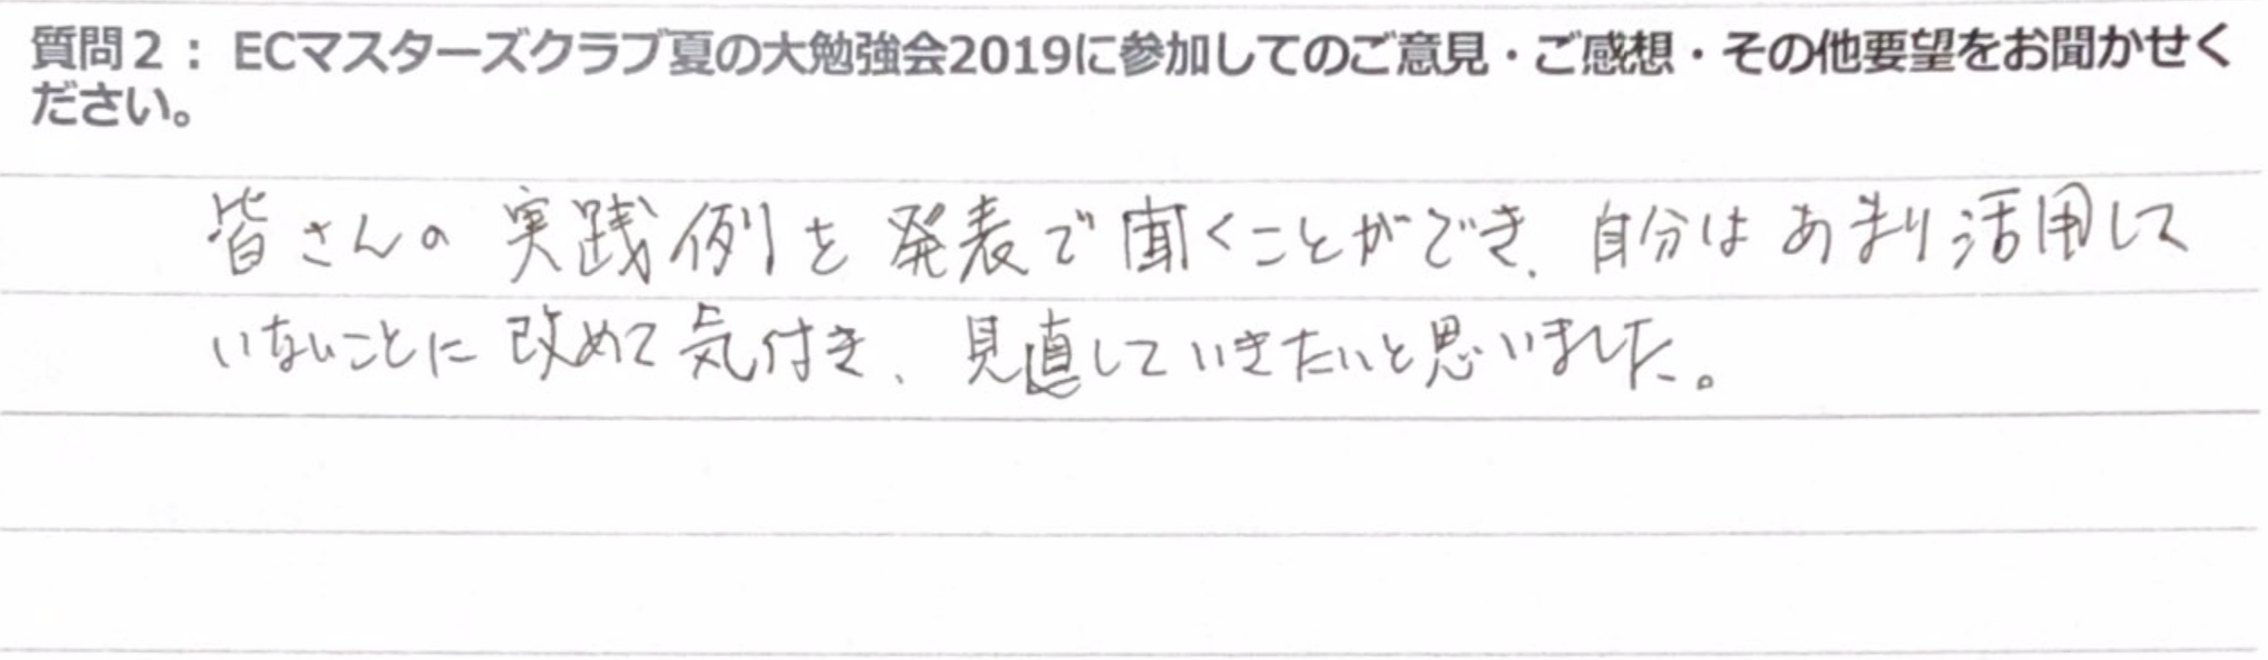 質問２：ECマスターズクラブ夏の大勉強会2019に参加してのご意見・ご感想・その他要望をお聞かせく
ださい。
皆さんの実践例を発表で聞くことができ、自分はあまり活用して
いないことに改めて気付き、見直していきたいと思いました。